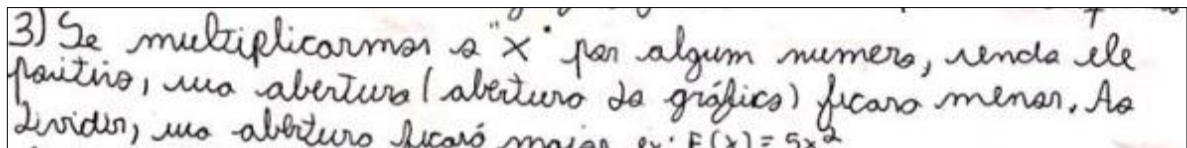 3) Se multiplicarmos o "x" por algum numero, sendo ele
positivo, sua abertura (abertura do gráfico) ficara menor. Ao
dividir, sua abertura ficará maior ex: F(x) = 5x²